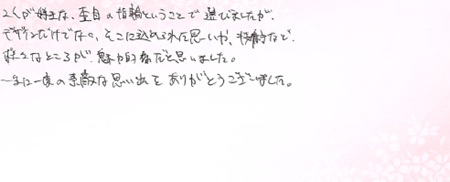 2人が好きな、杢目の指輪ということで選びましたが、
デザインだけでなく、そこに込められた思いや、技術など、
様々なところが魅力的だと思いました。
一生に一度の素敵な思い出をありがとうございました。